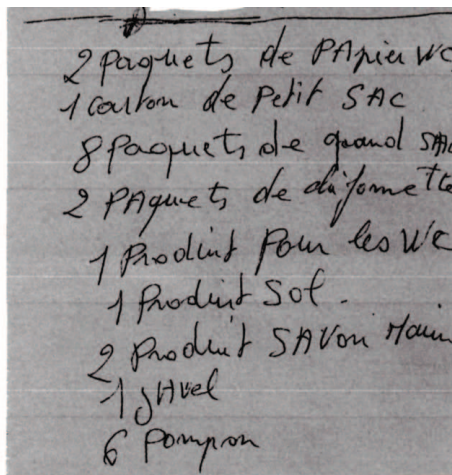 2 paquets de PApier WC
1 carton de Petit SAC
8 Paquets de grand SAC
2 PAquets de
1 Produit Pour les WC
1 Produit Sol.
2 Produit SAVon Main
1 JAVel
6 Pompon